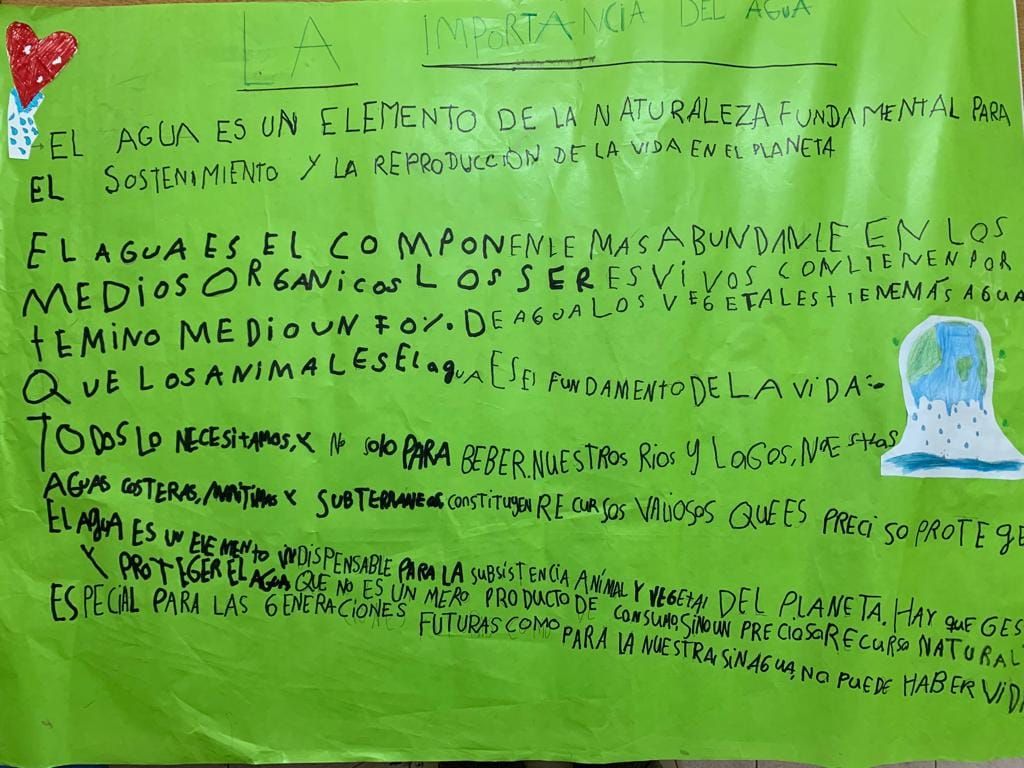 LA IMPORTANCIA DEL AGUA
EL AGUA ES UN ELEMENTO DE LA NATURALEZA FUNDAMENTAL PARA
EL SOSTENIMIENTO Y LA REPRODUCCIÓN DE LA VIDA EN EL PLANETA
EL AGUA ES EL COMPONENLE MAS ABUNDANLE EN LOS
MEDIOS ORGANICOS LOS SERES VIVOS CONLIENEN POR
tEMINO MEDIO UN 70%. DE AGUA LOS VEGETALES tIENEMÁS AGUA
QUE LOS ANIMALES El agua ES El FUNDAMENTO DE LA VIDA:-
TODOS LO NECESITAMOS, Y NO SOLO PARA BEBER. NUESTROS RIOS Y LAGOS, NUESTRAS
AGUAS COSTERAS, MARITIMAS Y SUBTERRANEAS constituyen RECURSOS VALIOSOS QUE ES PRECISO PROTEGE
EL AGUA ES UN ELEMENTO INDISPENSABLE PARA LA SUBSISTENCIA ANIMAL Y VEGETAl DEL PLANETA. HAY QUE GES
Y PROTEGER EL AGUA QUE NO ES UN MERO PRODUCTO DE CONSUMO, SINO UN PRECIOSO RECURSO NATURAL
ESPECIAL PARA LAS GENERACIONES FUTURAS COMO PARA LA NUESTRA. SIN AGUA, NO PUEDE HABER VID